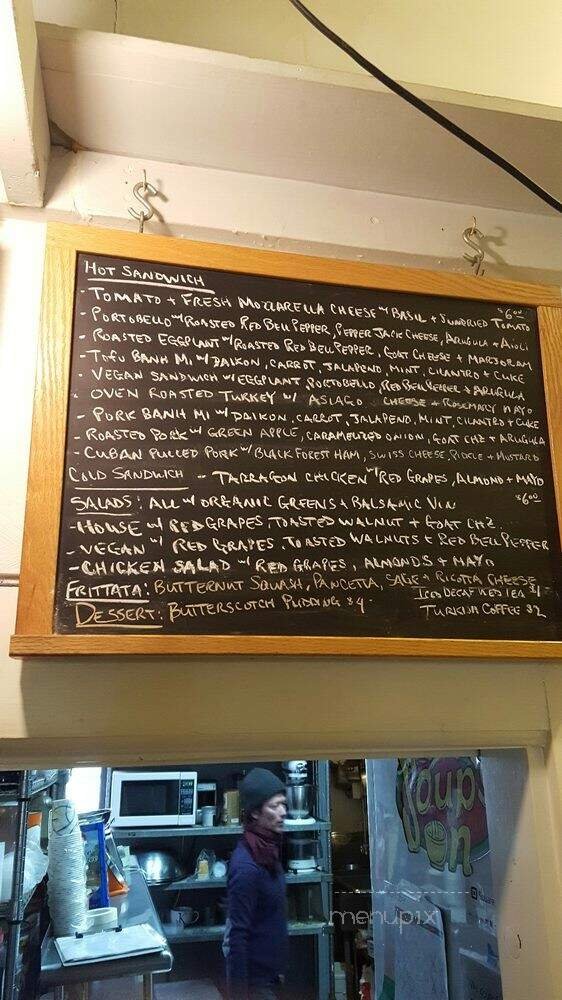 HOT SANDWICH
$6.00
- TOMATO + FRESH MOZZARELLA CHEESE W/ BASIL + SUNDRIED TOMATO
- PORTOBELLO W/ ROASTED RED BELL PEPPER, PEPPER JACK CHEESE, ARUGULA + AIOLI
- ROASTED EGGPLANT W/ ROASTED RED BELL PEPPER, GOAT CHEESE + MARJORAM
- TOFU BANH MI W/ DAIKON, CARROT, JALAPENO, MINT, CILANTRO + CUKE
- VEGAN SANDWICH W/ EGGPLANT, PORTOBELLO, RED BELL PEPPER + ARUGULA
- OVEN ROASTED TURKEY W/ ASIAGO CHEESE + ROSEMARY MAYO
- PORK BANH MI W/ DAIKON, CARROT, JALAPENO, MINT, CILANTRO + CUKE
- ROASTED PORK W/ GREEN APPLE, CARAMELIZED ONION, GOAT CHZ + ARUGULA
- CUBAN PULLED PORK W/ BLACK FOREST HAM, SWISS CHEESE, PICKLE + MUSTARD
COLD SANDWICH - TARRAGON CHICKEN W/ RED GRAPES, ALMOND + MAYO
$6.00
SALADS: ALL W/ ORGANIC GREENS + BALSAMIC VIN
- HOUSE W/ RED GRAPES TOASTED WALNUT + GOAT CHZ.
- VEGAN W/ RED GRAPES, TOASTED WALNUTS + RED BELL PEPPER
- CHICKEN SALAD W/ RED GRAPES, ALMONDS + MAYO
FRITTATA: BUTTERNUT SQUASH, PANCETTA, SAGE + RICOTTA CHEESE
ICED DECAF
DESSERT: BUTTERSCOTCH PUDDING $4
TURKISH COFFEE $2
Soups
On
menupix